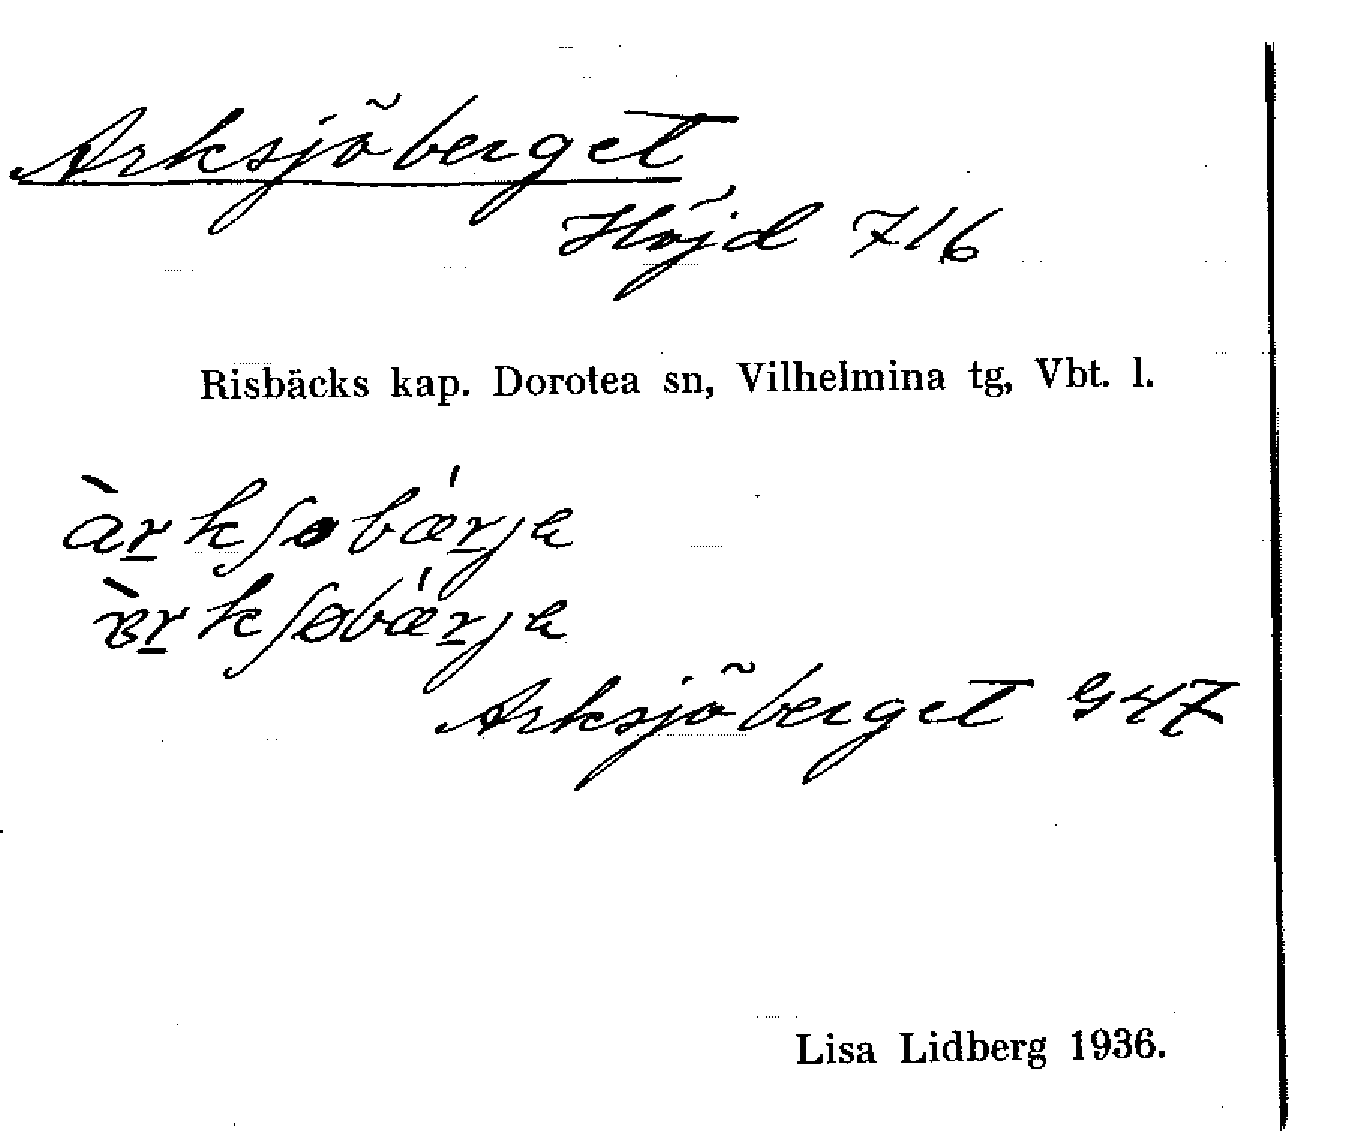 Arksjöberget
Höjd 716
Risbäcks kap. Dorotea sn, Vilhelmina tg, Vbt. l.
àr̲kʃøbǽr̲ja
ɐ̀r̲kʃɵbǽr̲ja
Arksjöberget G47
Lisa Lidberg 1936.